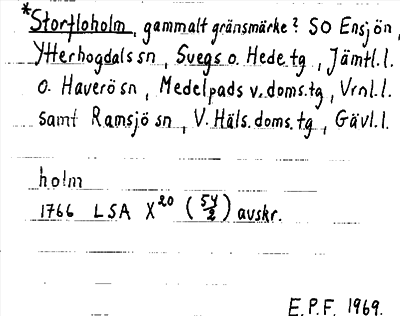 *Storfloholm, gammalt gränsmärke? SO Ensjön,
Ytterhogdals sn, Svegs o. Hede tg, Jämtl.l.
o. Haverö sn, Medelpads v. doms.tg, Vrnl.l.
samt Ramsjö sn, V. Häls. doms. tg, Gävl.l.
holm
1766 LSA X20 (54/2) avskr.
E.P.F. 1969.